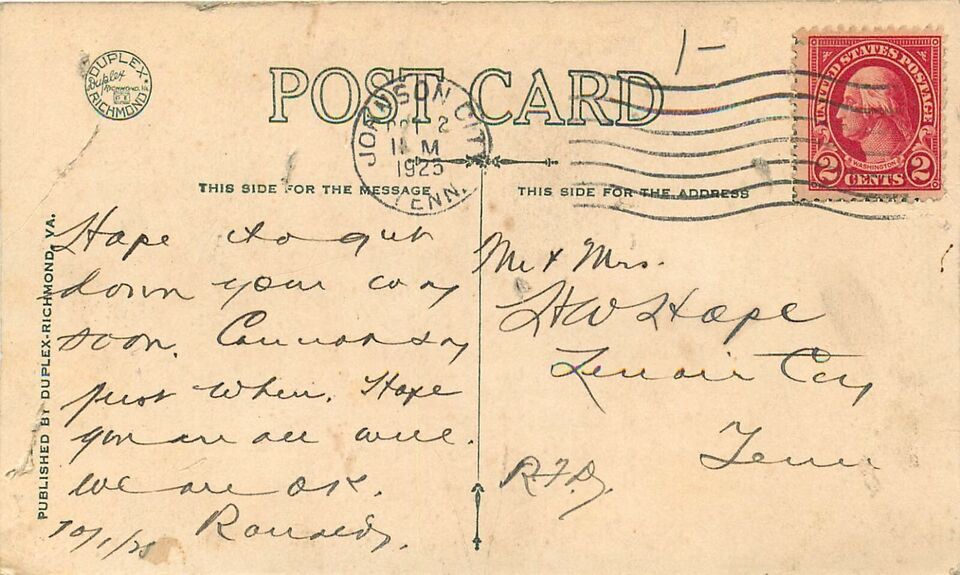 DUPLEX
Duplex
RICHMOND, VA.
RICHMOND
POST CARD
1-
JOHNSON CITY
OCT 2
M
1925
TENN.
UNITED STATES POSTAGE
WASHINGTON
2 CENTS 2
THIS SIDE FOR THE MESSAGE
THIS SIDE FOR THE ADDRESS
PUBLISHED BY DUPLEX-RICHMOND, VA.
Hope to get
down your way
soon. Cannot say
just when. Hope
you are all well.
We are OK.
10/1/25
Mr & Mrs.
HW Hope
Lenoir City
Tenn
R.F.D.